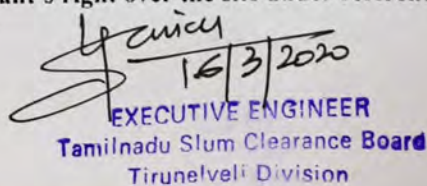 16/3/2020
EXECUTIVE ENGINEER
Tamilnadu Slum Clearance Board
Tirunelveli Division